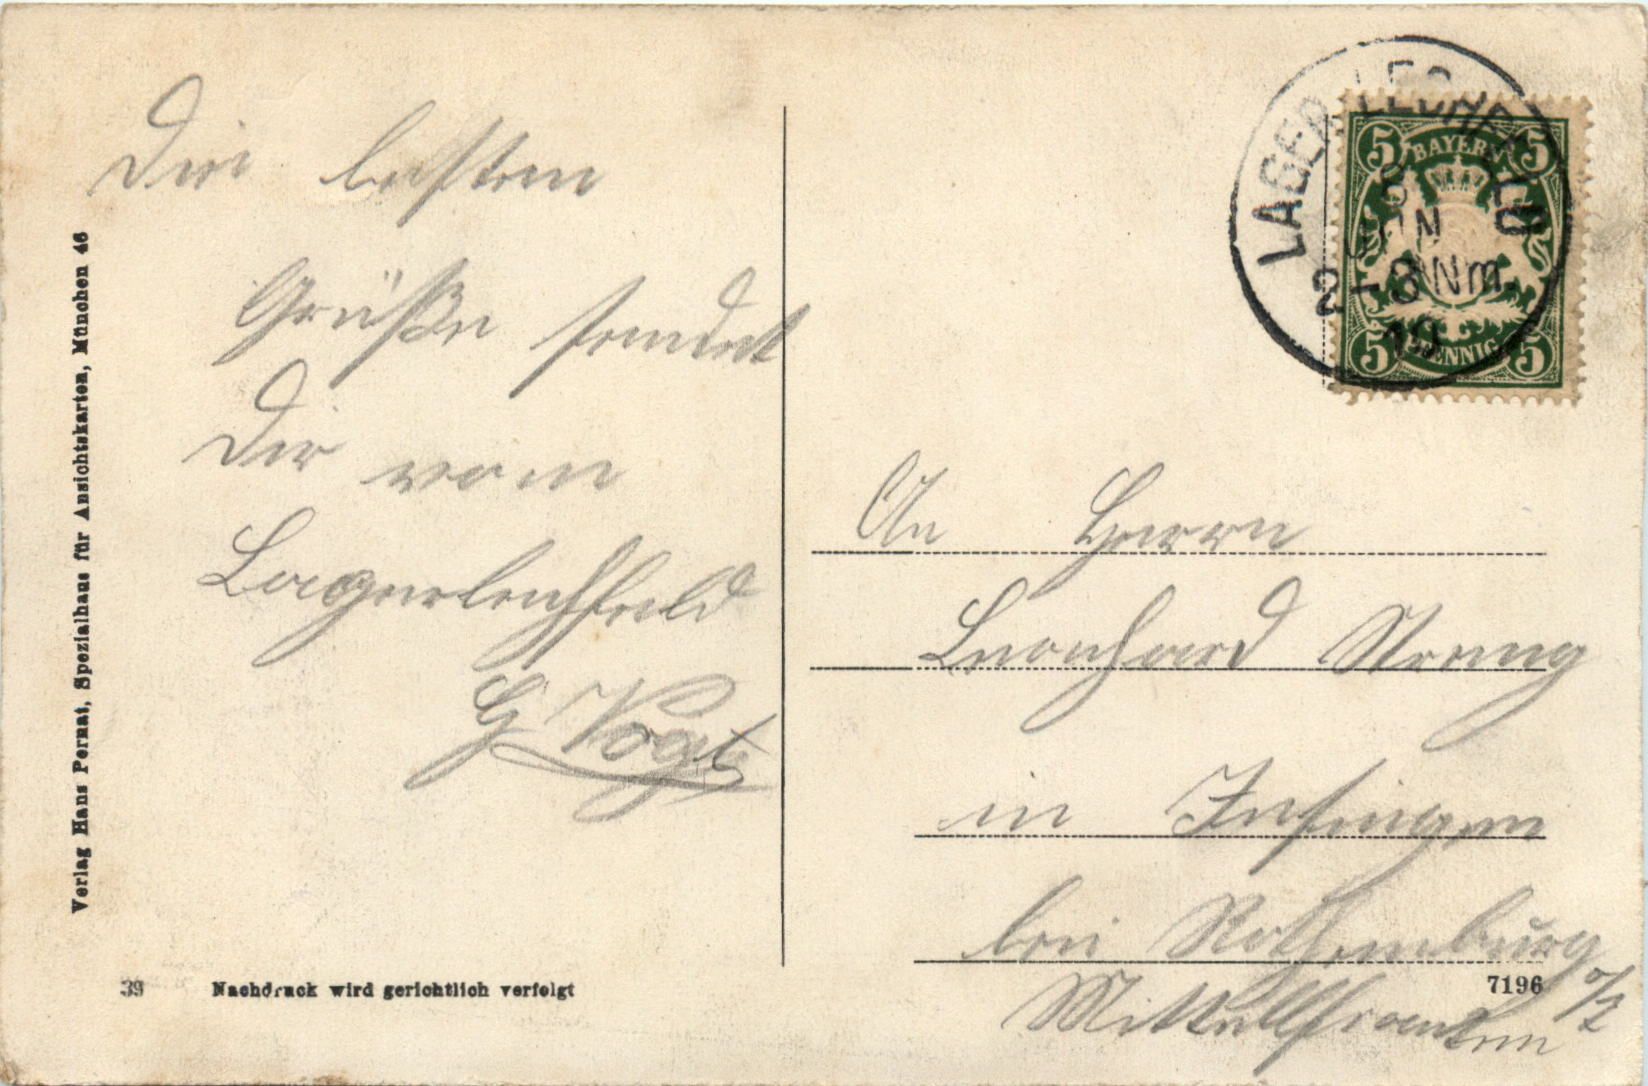 Die besten
Grüße sendet
Dir vom
Lagerlechfeld
G Vogt
An Herrn
Leonhard
in Insingen
bei Rothenburg o/T
Mittelfranken
LAGER LECHFELD
5
JUN
2-3 Nm.
BAYERN
5 5
5 PFENNIG 5
Verlag Hans Pernat, Spezialhaus für Ansichtskarten, München 46
39 Nachdruck wird gerichtlich verfolgt
7196